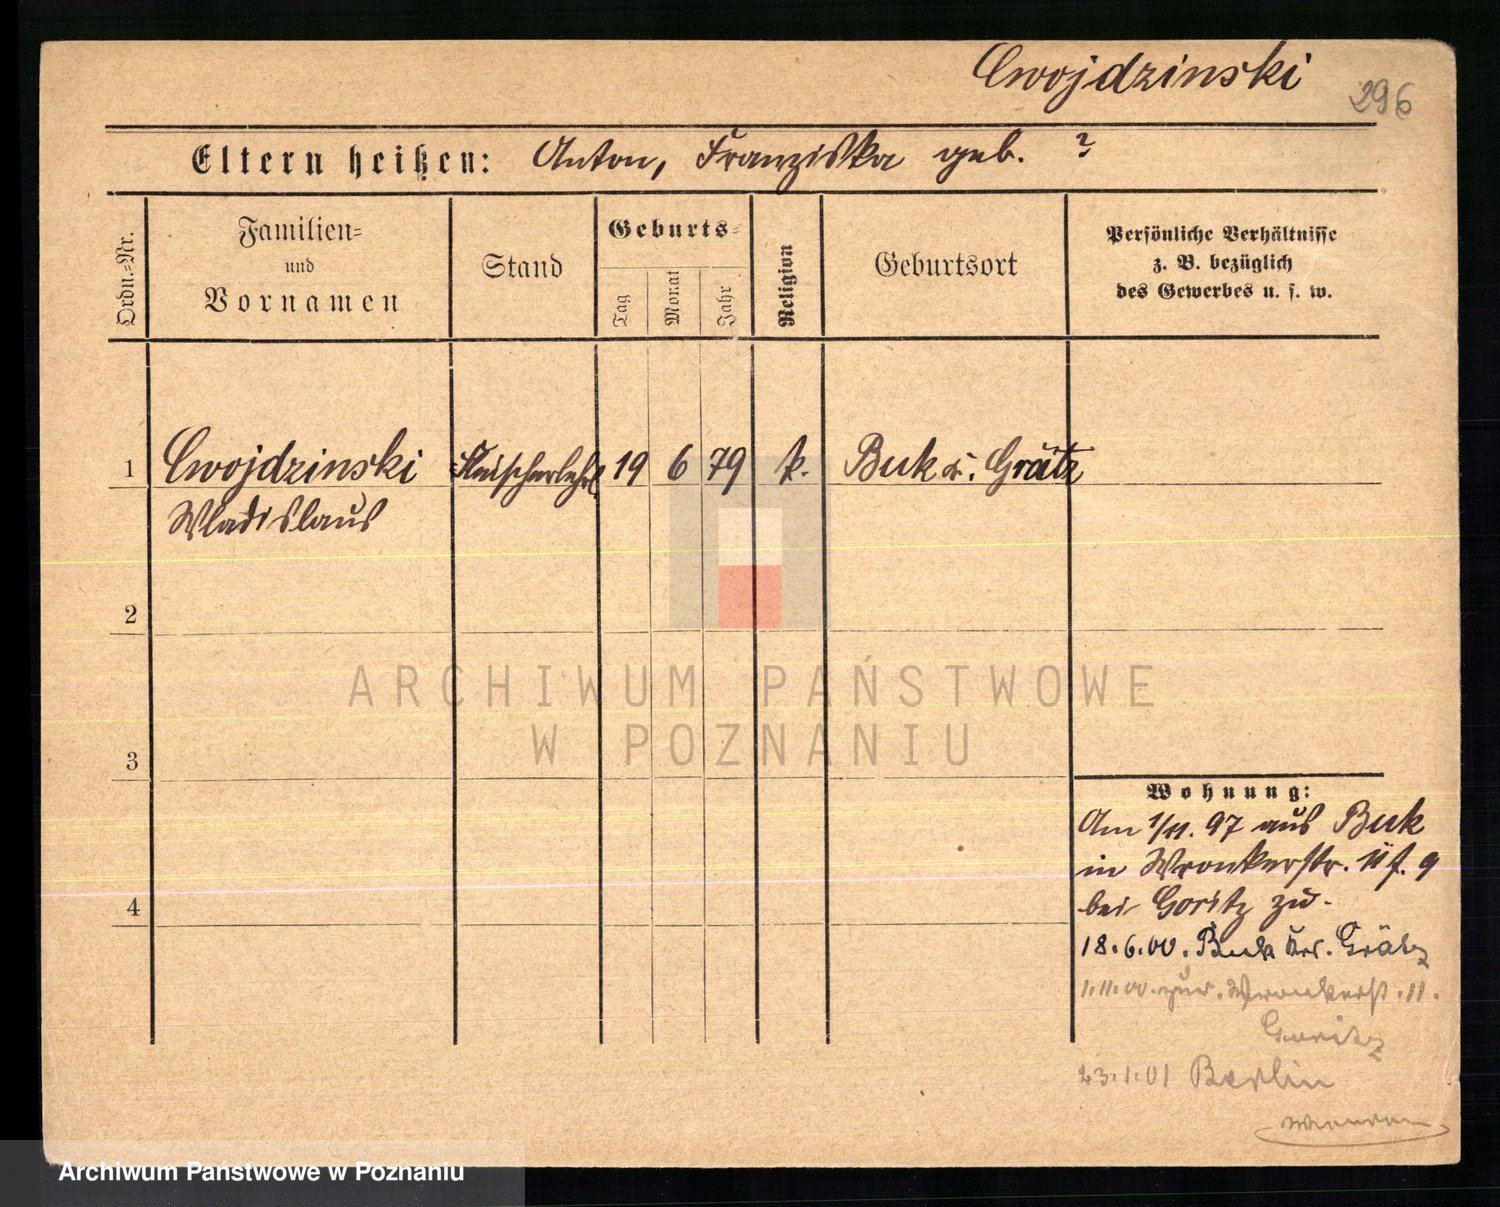 Cwojdzinski
296
Eltern heißen: Anton, Franziska geb. ?
Ordn.=Nr.
Familien=
und
Vornamen
Stand
Geburts=
Tag
Monat
Jahr
Religion
Geburtsort
Persönliche Verhältnisse
z. B. bezüglich
des Gewerbes u. s. w.
1 Cwojdzinski Fleischerlehrl 19 6 79 k. Buk Kr. Grätz
Wladislaus
2
3
4
ARCHIWUM PAŃSTWOWE
W POZNANIU
Wohnung:
Am 1/11. 97 aus Buk
in Wronkerstr. 11 f. 9
bei Goritz zu.
18.6.00. Buk Kr. Grätz
1.11.00. zur. Wronkerst. 11.
Goritz
23.1.01 Berlin
Archiwum Państwowe w Poznaniu